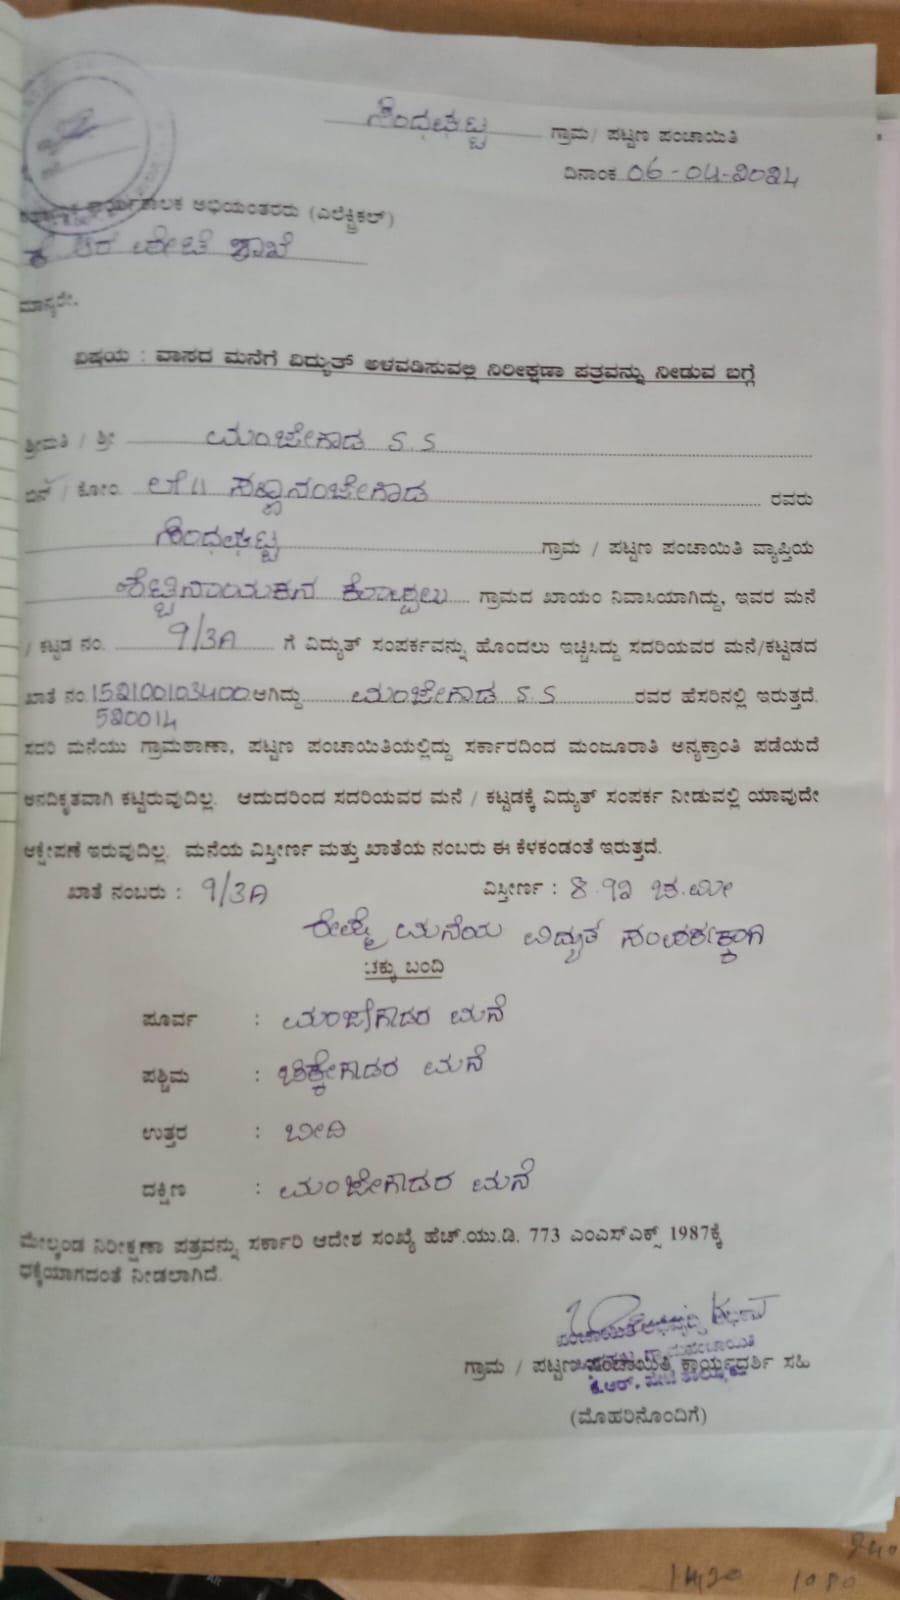 ಸಿಂದಘಟ್ಟ ಗ್ರಾಮ/ ಪಟ್ಟಣ ಪಂಚಾಯಿತಿ
ದಿನಾಂಕ 06-04-2024
ಅಭಿಯಂತರರು (ಎಲೆಕ್ಟ್ರಿಕಲ್)
ಕೆ ಆರ ಪೇಟೆ ಶಾಖೆ
ಮಾನ್ಯರೇ,
ವಿಷಯ : ವಾಸದ ಮನೆಗೆ ವಿದ್ಯುತ್ ಅಳವಡಿಸುವಲ್ಲಿ ನಿರೀಕ್ಷಣಾ ಪತ್ರವನ್ನು ನೀಡುವ ಬಗ್ಗೆ
ಶ್ರೀಮತಿ / ಶ್ರೀ ಮಂಜೇಗೌಡ S.S
ಬಿನ್ / ಕೋಂ. ಲೇ॥ ಸಣ್ಣನಂಜೇಗೌಡ ರವರು
ಸಿಂದಘಟ್ಟ ಗ್ರಾಮ / ಪಟ್ಟಣ ಪಂಚಾಯಿತಿ ವ್ಯಾಪ್ತಿಯ
ಶೆಟ್ಟಿನಾಯಕನ ಕೊಪ್ಪಲು ಗ್ರಾಮದ ಖಾಯಂ ನಿವಾಸಿಯಾಗಿದ್ದು, ಇವರ ಮನೆ
/ ಕಟ್ಟಡ ನಂ. 9/3A ಗೆ ವಿದ್ಯುತ್ ಸಂಪರ್ಕವನ್ನು ಹೊಂದಲು ಇಚ್ಚಿಸಿದ್ದು ಸದರಿಯವರ ಮನೆ/ಕಟ್ಟಡದ
ಖಾತೆ ನಂ. 152100103400 ಆಗಿದ್ದು ಮಂಜೇಗೌಡ S.S ರವರ ಹೆಸರಿನಲ್ಲಿ ಇರುತ್ತದೆ.
520014
ಸದರಿ ಮನೆಯು ಗ್ರಾಮಠಾಣಾ, ಪಟ್ಟಣ ಪಂಚಾಯಿತಿಯಲ್ಲಿದ್ದು ಸರ್ಕಾರದಿಂದ ಮಂಜೂರಾತಿ ಅನ್ಯಕ್ರಾಂತಿ ಪಡೆಯದೆ
ಅನದಿಕೃತವಾಗಿ ಕಟ್ಟಿರುವುದಿಲ್ಲ. ಆದುದರಿಂದ ಸದರಿಯವರ ಮನೆ / ಕಟ್ಟಡಕ್ಕೆ ವಿದ್ಯುತ್ ಸಂಪರ್ಕ ನೀಡುವಲ್ಲಿ ಯಾವುದೇ
ಆಕ್ಷೇಪಣೆ ಇರುವುದಿಲ್ಲ. ಮನೆಯ ವಿಸ್ತೀರ್ಣ ಮತ್ತು ಖಾತೆಯ ನಂಬರು ಈ ಕೆಳಕಂಡಂತೆ ಇರುತ್ತದೆ.
ಖಾತೆ ನಂಬರು : 9/3A ವಿಸ್ತೀರ್ಣ : 8.92 ಚ.ಮೀ
ರೇಷ್ಮೆ ಮನೆಯ ವಿದ್ಯುತ ಸಂಪರ್ಕಕ್ಕಾಗಿ
ಚಕ್ಕು ಬಂದಿ
ಪೂರ್ವ : ಮಂಜೇಗೌಡರ ಮನೆ
ಪಶ್ಚಿಮ : ಚಿಕ್ಕೇಗೌಡರ ಮನೆ
ಉತ್ತರ : ಬೀದಿ
ದಕ್ಷಿಣ : ಮಂಜೇಗೌಡರ ಮನೆ
ಮೇಲ್ಕಂಡ ನಿರೀಕ್ಷಣಾ ಪತ್ರವನ್ನು ಸರ್ಕಾರಿ ಆದೇಶ ಸಂಖ್ಯೆ ಹೆಚ್.ಯು.ಡಿ. 773 ಎಂಎಸ್ಎಕ್ಸ್ 1987ಕ್ಕೆ
ಧಕ್ಕೆಯಾಗದಂತೆ ನೀಡಲಾಗಿದೆ.
ಪಂಚಾಯಿತಿ ಅಭಿವೃದ್ಧಿ
ಗ್ರಾಮ / ಪಟ್ಟಣ ಪಂಚಾಯಿತಿ ಕಾರ್ಯದರ್ಶಿ ಸಹಿ
ಕೆ.ಆರ್. ಪೇಟೆ ತಾಲ್ಲೂಕು
(ಮೊಹರಿನೊಂದಿಗೆ)
1080